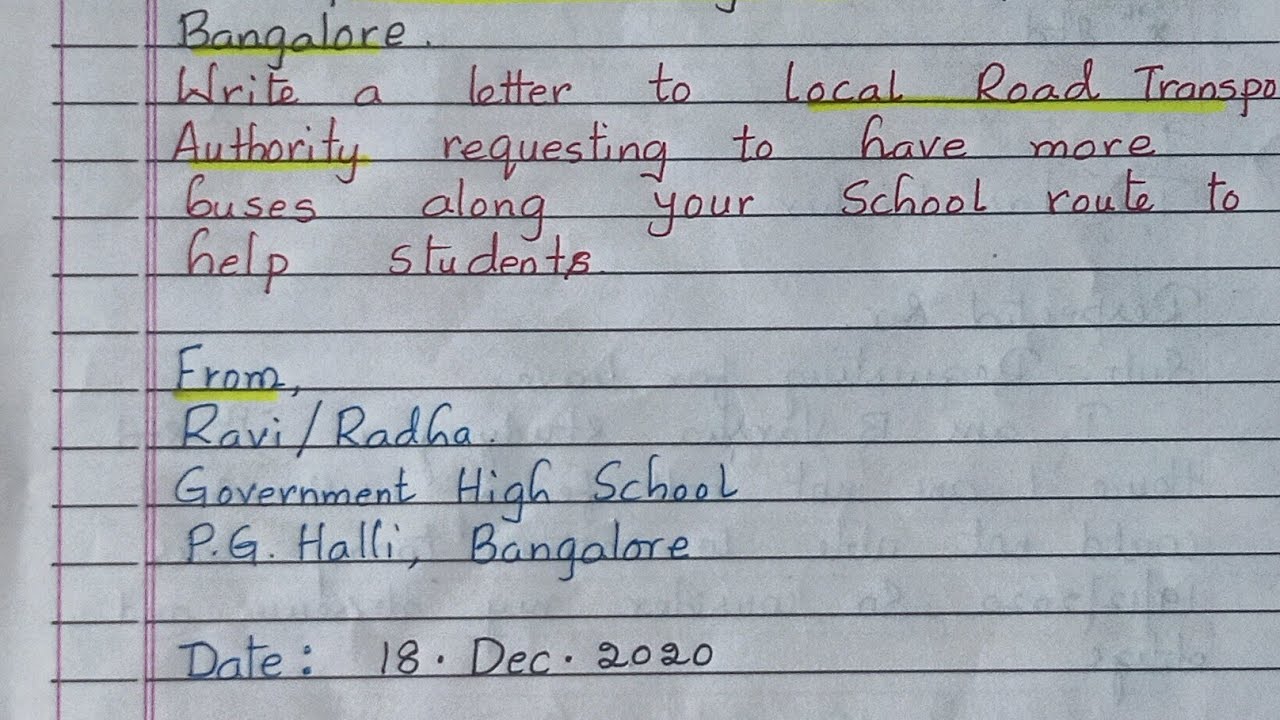 Bangalore.
Write a letter to Local Road Transpo
Authority requesting to have more
buses along your School route to
help students.
From,
Ravi/Radha.
Government High School
P.G. Halli, Bangalore
Date: 18. Dec. 2020